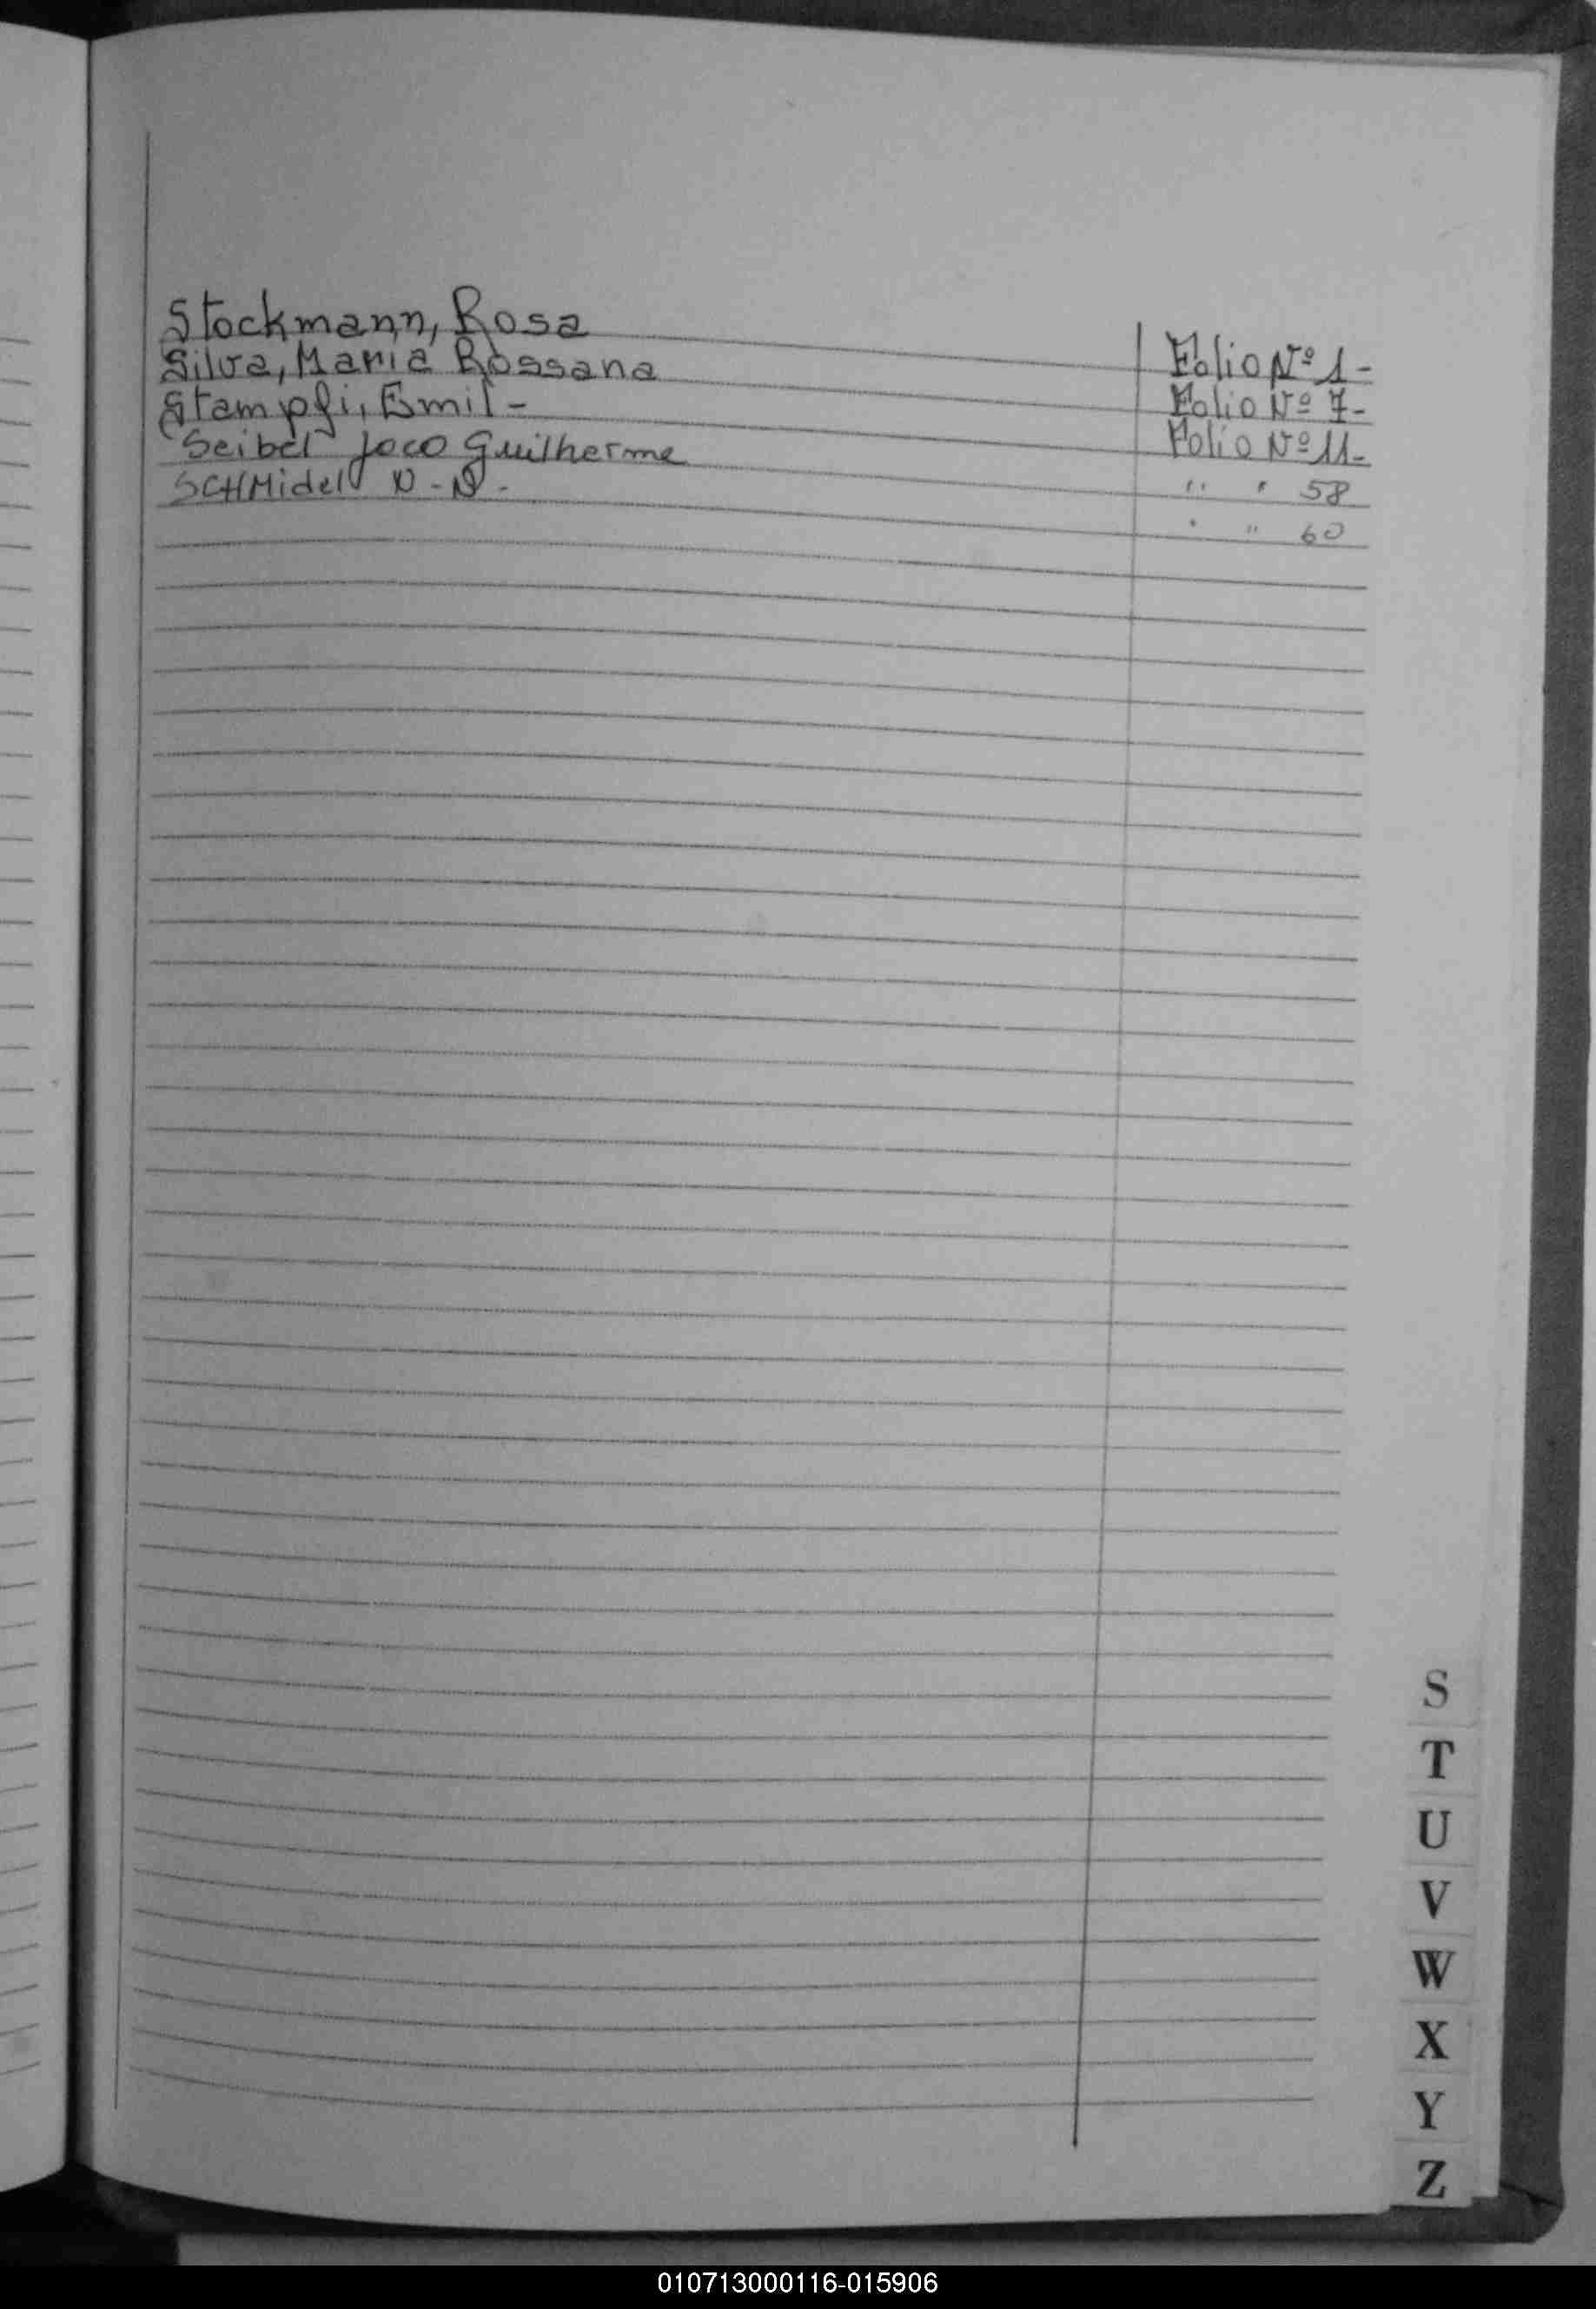 Stockmann, Rosa Folio Nº 1-
Silva, Maria Rossana Folio Nº 7-
Stampfi, Emil - Folio Nº 11-
Seibel Joco Guilherme " " 58
SCHMidell N - N - " " 60
S
T
U
V
W
X
Y
Z
010713000116-015906